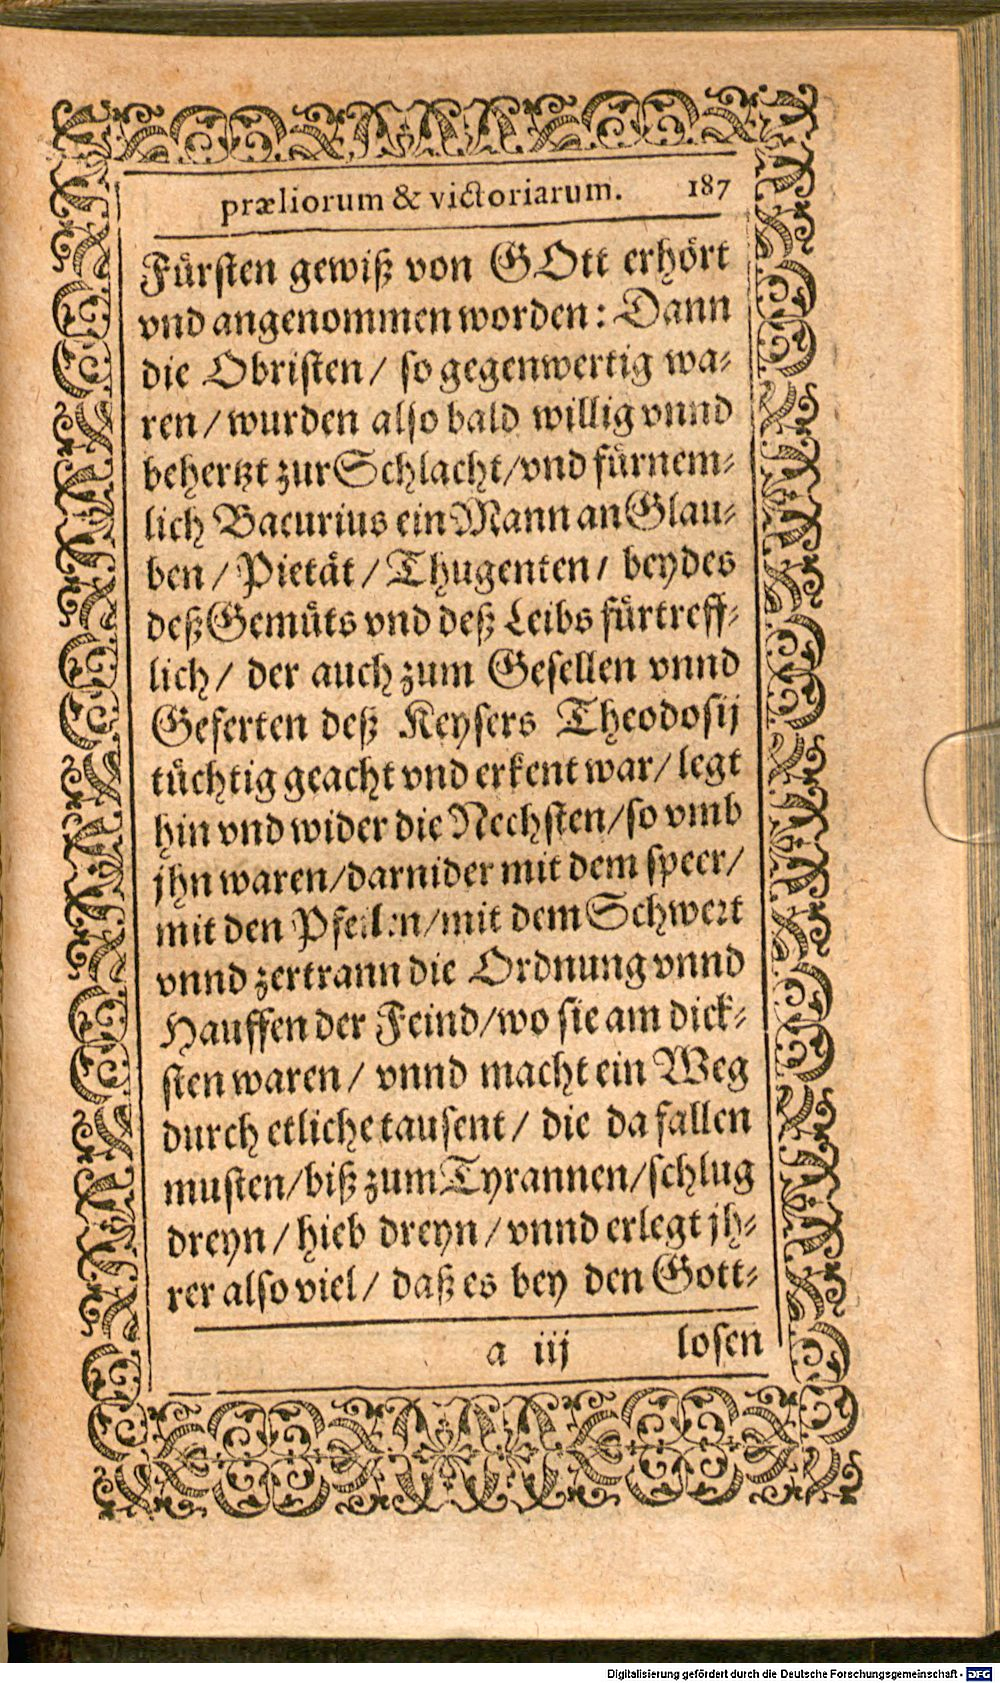 præliorum & victoriarum. 187
Fürsten gewiß von GOtt erhört
vnd angenommen worden: Dann
die Obristen / so gegenwertig wa-
ren / wurden also bald willig vnnd
behertzt zur Schlacht / vnd fürnem-
lich Bacurius ein Mann an Glau-
ben / Pietät / Thugenten / beydes
deß Gemüts vnd deß Leibs fürtreff-
lich / der auch zum Gesellen vnnd
Geferten deß Keysers Theodosij
tüchtig geacht vnd erkent war / legt
hin vnd wider die Nechsten / so vmb
jhn waren / darnider mit dem speer /
mit den Pfeilen / mit dem Schwert
vnnd zertrann die Ordnung vnnd
Hauffen der Feind / wo sie am dick-
sten waren / vnnd macht ein Weg
durch etliche tausent / die da fallen
musten / biß zum Tyrannen / schlug
dreyn / hieb dreyn / vnnd erlegt jh-
rer also viel / daß es bey den Gott-
a iij losen
Digitalisierung gefördert durch die Deutsche Forschungsgemeinschaft - DFG